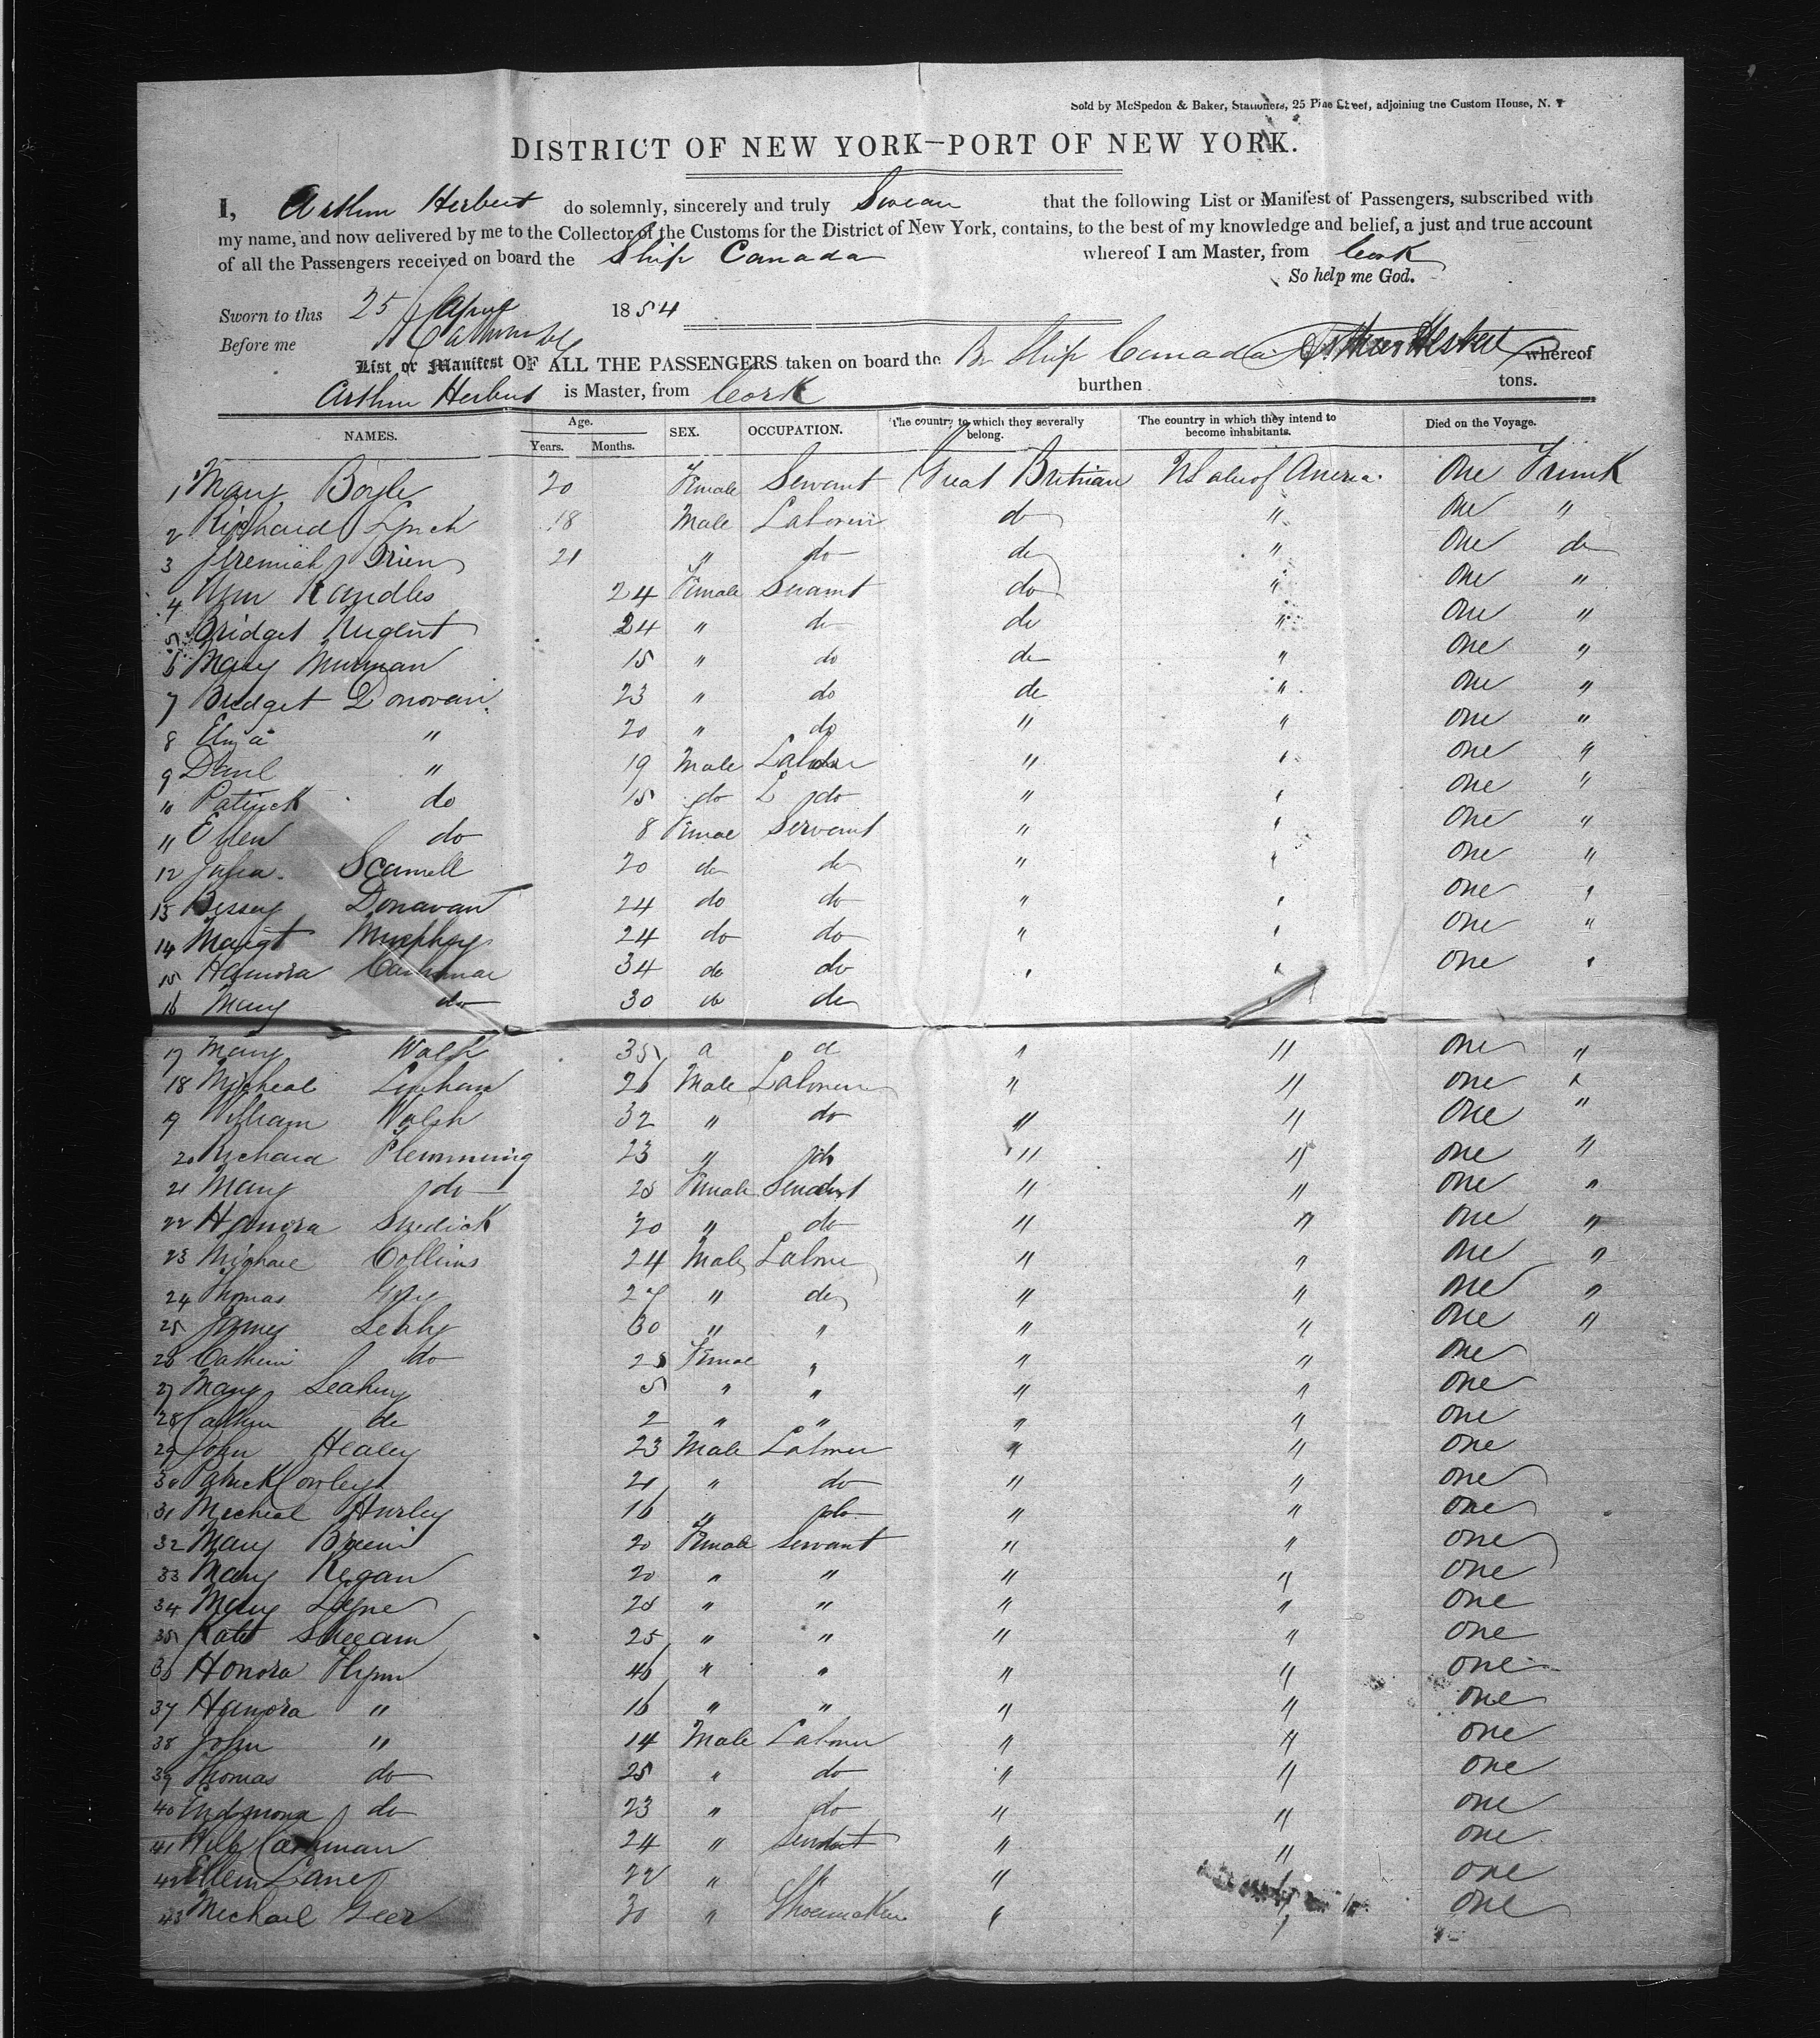 Sold by McSpedon & Baker, Stationers, 25 Pine Street, adjoining the Custom House, N. Y
DISTRICT OF NEW YORK—PORT OF NEW YORK.
I, Arthur Herbert do solemnly, sincerely and truly Swear that the following List or Manifest of Passengers, subscribed with
my name, and now delivered by me to the Collector of the Customs for the District of New York, contains, to the best of my knowledge and belief, a just and true account
of all the Passengers received on board the Ship Canada whereof I am Master, from Cork
So help me God.
Sworn to this 25 April 1854
Before me
List or Manifest OF ALL THE PASSENGERS taken on board the Br Ship Canada Arthur Herbert whereof
Arthur Herbert is Master, from Cork burthen tons.
NAMES. Age. Years. Months. SEX. OCCUPATION. The country to which they severally belong. The country in which they intend to become inhabitants. Died on the Voyage.
1 Mary Boyle 20 Female Servant Great Britain US of America One Trunk
2 Richard Lynch 18 Male Laborer do " One "
3 Jeremiah Brien 21 " do do " One do
4 Ann Randles 24 Female Servant do " One "
5 Bridget Nugent 24 " do do " One "
6 Mary 15 " do do " One "
7 Bridget Donovan 23 " do do " One "
8 Eliza " 20 " do " " One "
9 Danl " 19 Male Labor " " One "
10 Patrick do 15 do do " " One "
11 Ellen do 8 Female Servant " " One "
12 Julia Scannell 20 do do " " One "
13 Bessey Donavan 24 do do " " One "
14 Margt Murphy 24 do do " " One "
15 Hanora 34 do do " " One "
16 Mary do 30 do do
17 Mary Walsh 35 " " One "
18 Micheal Linehan 26 Male Laborer " " One "
19 William Walsh 32 " do " " One "
20 Richard Flemming 23 " do " " One "
21 Mary do 25 Female Servant " " One "
22 Hanora 20 " do " " One "
23 Michael Collins 24 Male Labore " " One "
24 Thomas 27 " do " " One "
25 James Leahy 30 " " " " One "
26 Catherin do 25 Female " " " One
27 Mary Leahey 5 " " " " One
28 Cathen do 2 " " " " One
29 John Healey 23 Male Laborer " " One
30 Patrick Cowley 21 " do " " One
31 Micheal Hurley 16 " do " " One
32 Mary Breen 20 Female Servant " " One
33 Mary Regan 20 " " " " One
34 Mary Lyne 20 " " " " One
35 Kate 25 " " " " One
36 Honora Flynn 46 " " " " One
37 Hanora " 16 " " " " One
38 John " 14 Male Laborer " " One
39 Thomas do 25 " do " " One
40 Endmond do 23 " do " " One
41 Cashman 24 " Servant " " One
42 Ellen Lane 22 " " " " One
43 Michael Geer 30 " Shoemaker " " One